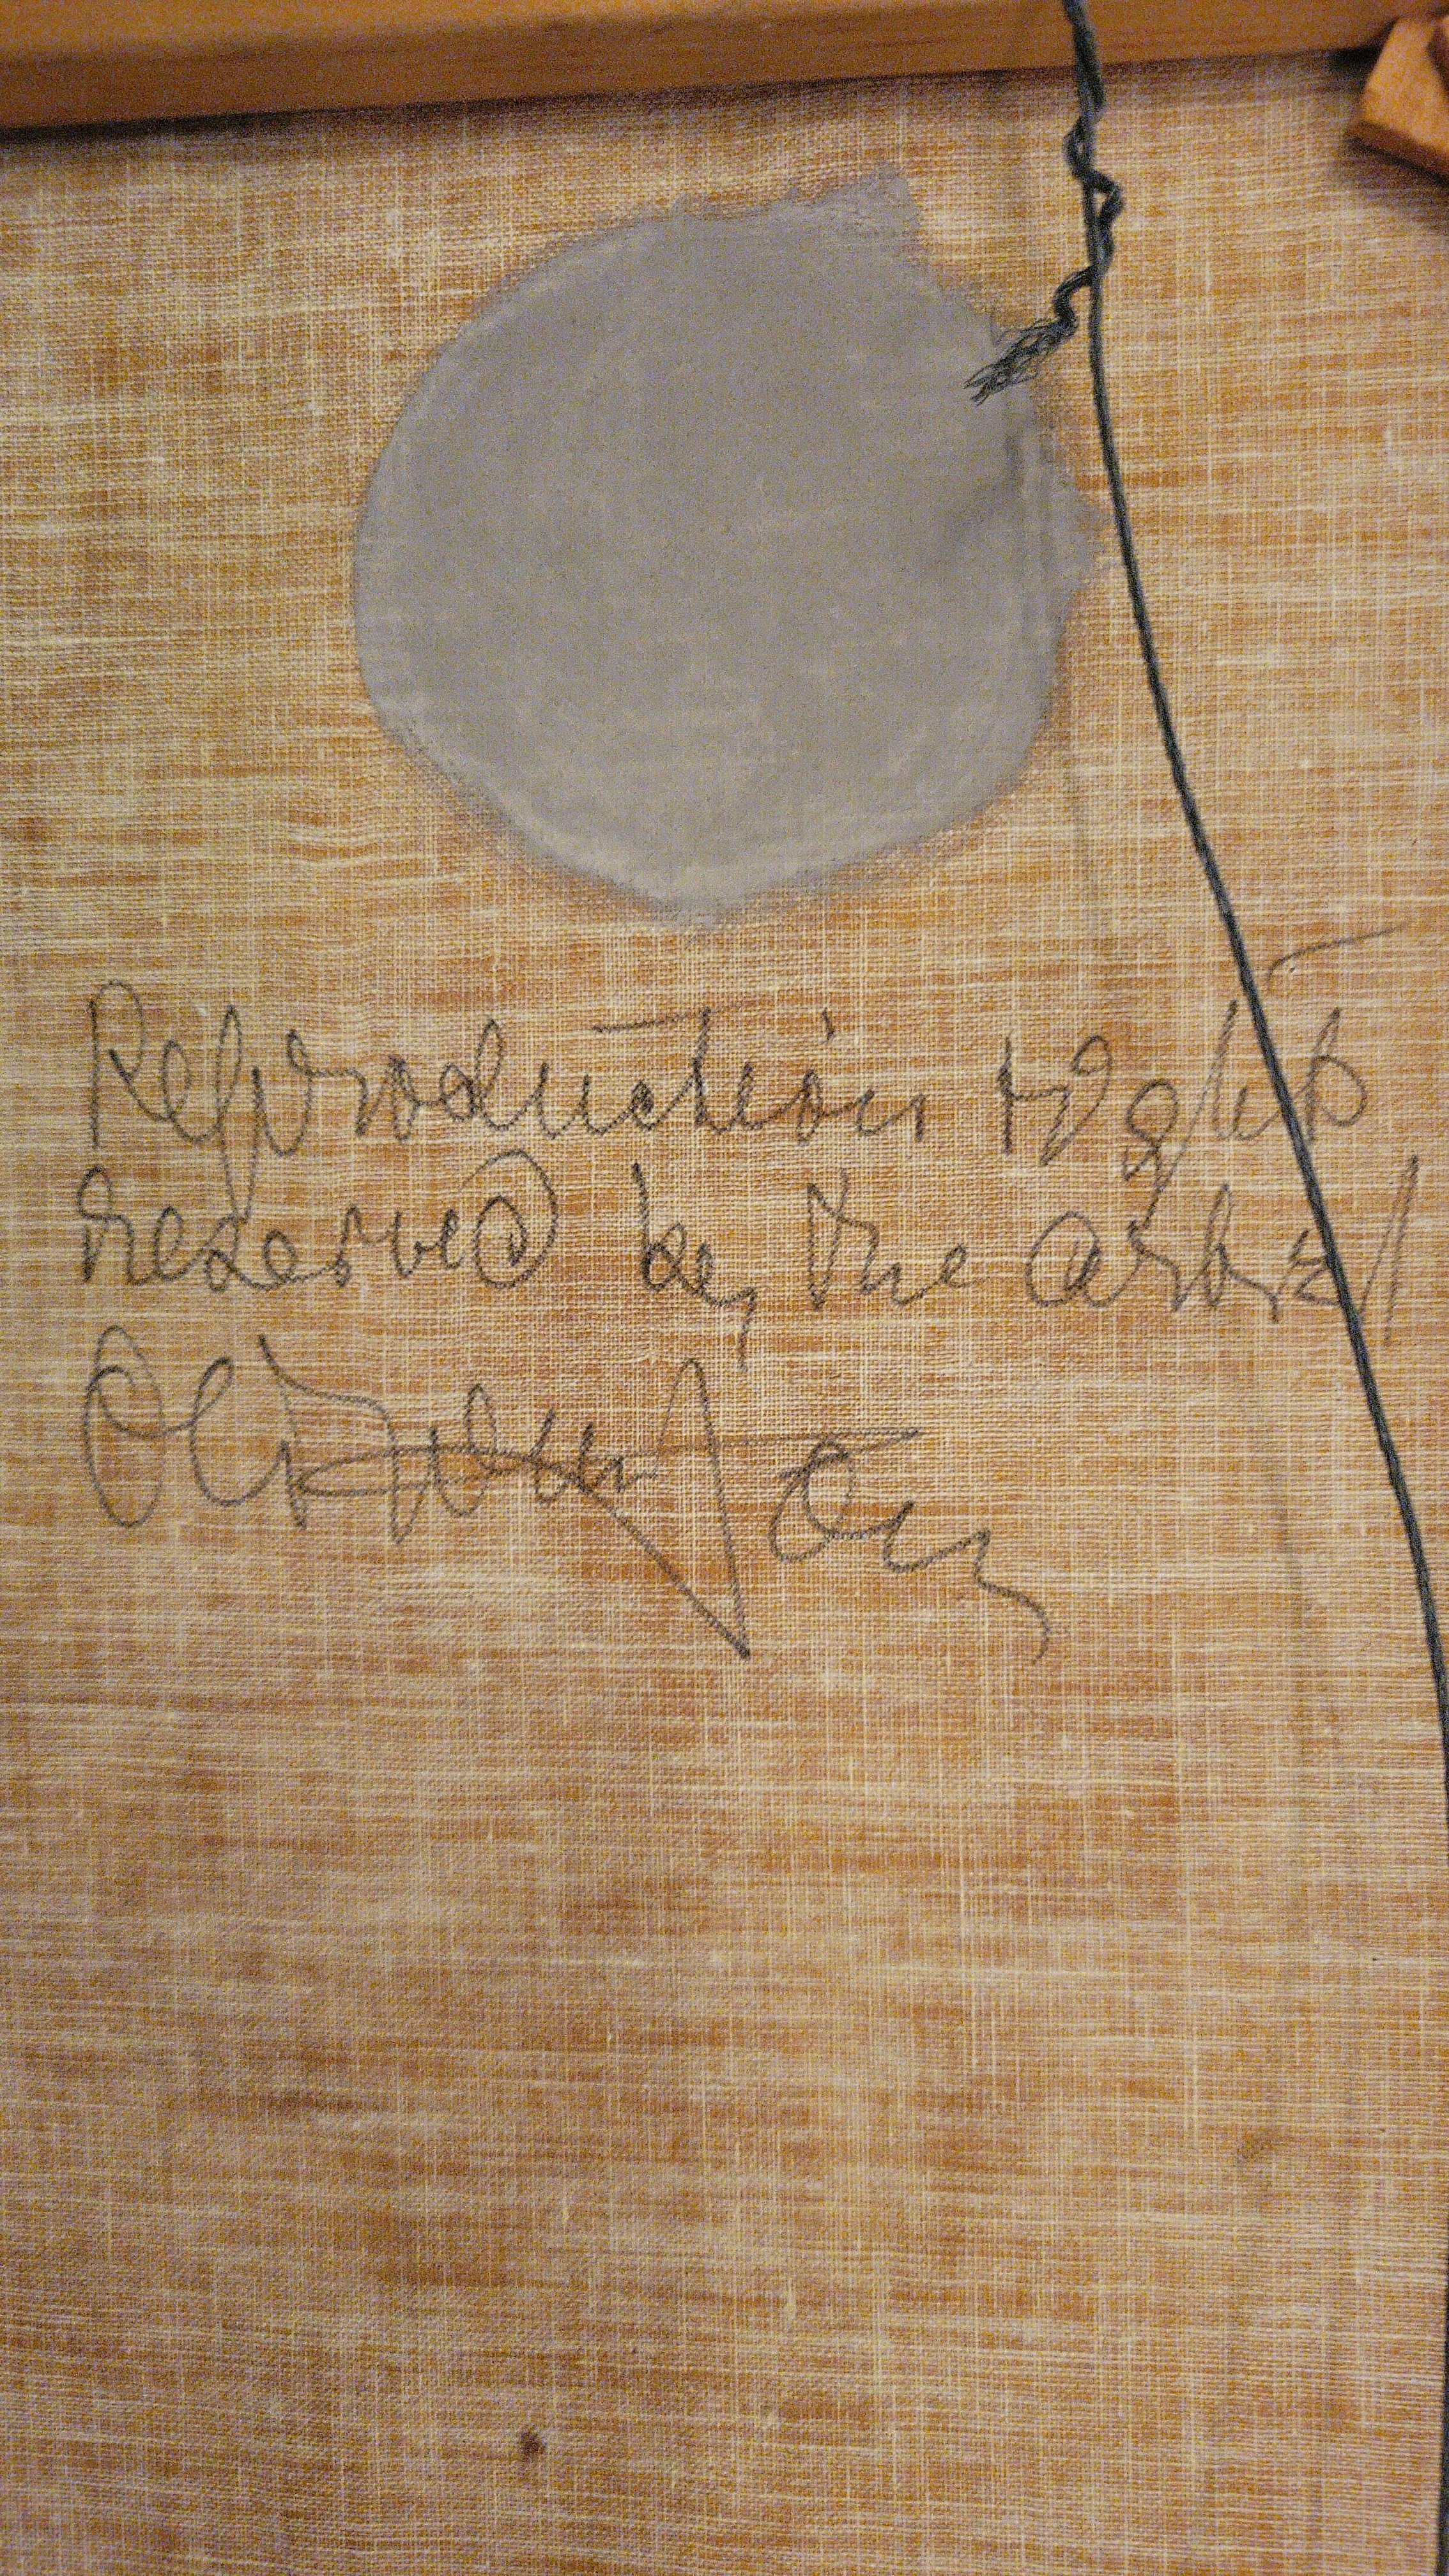 Reproduction rights
reserved by the artist